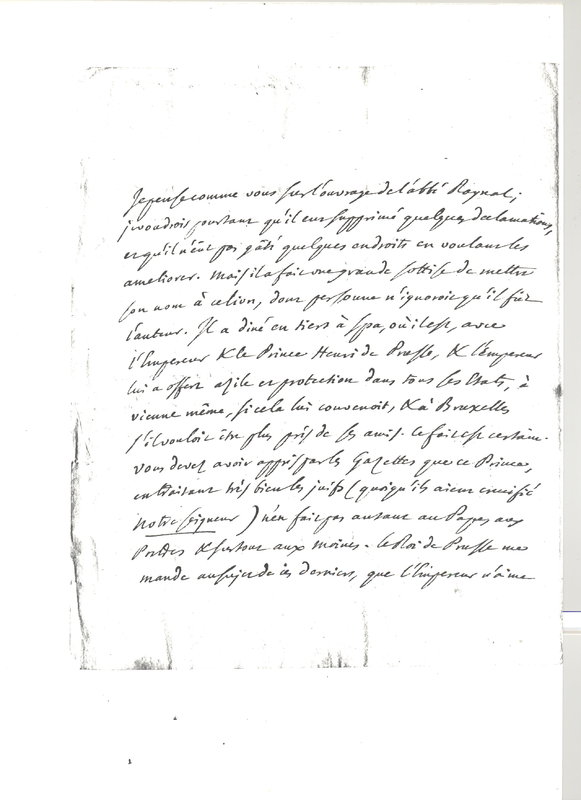 Je pense comme vous sur l'ouvrage de l'abbé Raynal;
je voudrois pourtant qu'il eut supprimé quelques declamations,
et qu'il n'eût pas gâté quelques endroits en voulant les
ameliorer. Mais il a fait une grande sottise de mettre
son nom à ce livre, dont personne n'ignoroit qu'il fût
l'auteur. Il a diné en tiers à Spa, où il est, avec
l'Empereur & le Prince Henri de Prusse, & l'Empereur
lui a offert asile et protection dans tous ses Etats, à
vienne même, si cela lui convenoit, & à Bruxelles
s'il vouloit être plus près de ses amis. Ce fait est certain.
vous devez avoir appris par les Gazettes que ce Prince,
en traitant très bien les juifs (quoiqu'ils aient crucifié
Notre Seigneur) n'en fait pas autant au Pape, aux
Prêtres & surtout aux moines. Le Roi de Prusse me
mande au sujet de ces derniers, que l'Empereur n'aime